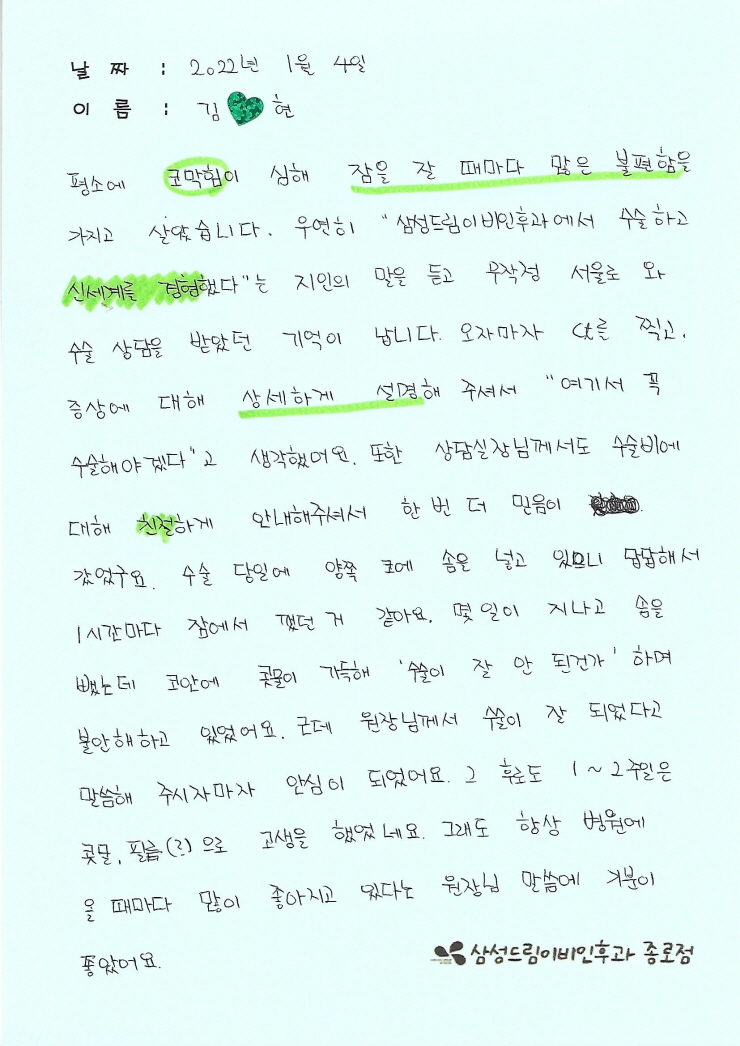 날 짜 : 2022년 1월 4일
이 름 : 김 현
평소에 코막힘이 심해 잠을 잘 때마다 많은 불편함을
가지고 살았습니다. 우연히 "삼성드림이비인후과에서 수술하고
신세계를 경험했다"는 지인의 말을 듣고 무작정 서울로 와
수술 상담을 받았던 기억이 납니다. 오자마자 Ct를 찍고,
증상에 대해 상세하게 설명해 주셔서 "여기서 꼭
수술해야겠다"고 생각했어요. 또한 상담실장님께서도 수술비에
대해 친절하게 안내해주셔서 한 번 더 믿음이
갔었구요. 수술 당일에 양쪽 코에 솜을 넣고 있으니 답답해서
1시간마다 잠에서 깼던 거 같아요. 몇 일이 지나고 솜을
뺐는데 코안에 콧물이 가득해 '수술이 잘 안 된건가' 하며
불안해하고 있었어요. 근데 원장님께서 수술이 잘 되었다고
말씀해 주시자마자 안심이 되었어요. 그 후로도 1~2주일은
콧물, 필름(?)으로 고생을 했었네요. 그래도 항상 병원에
올 때마다 많이 좋아지고 있다는 원장님 말씀에 기분이
좋았어요.
삼성드림이비인후과 종로점